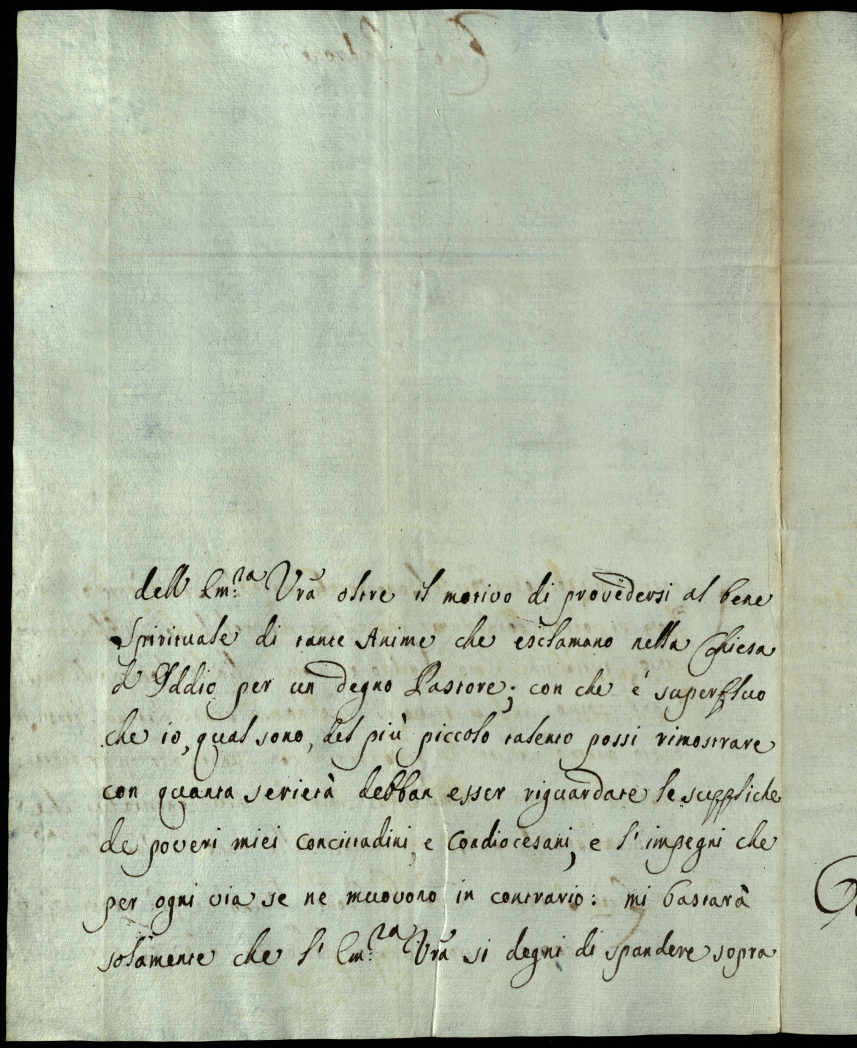 dell Em:za Vra oltre il motivo di provedersi al bene
Spirituale di tante Anime che esclamano nella Chiesa
d' Iddio per un degno Pastore; con che è superfluo
che io, qual sono, del più piccolo talento possi rimostrare
con quanta serietà debban esser riguardate le suppliche
de poveri miei concittadini, e Condiocesani, e l' impegni che
per ogni via se ne muovono in contrario: mi bastarà
solamente che l' Em:za Vra si degni di spandere sopra